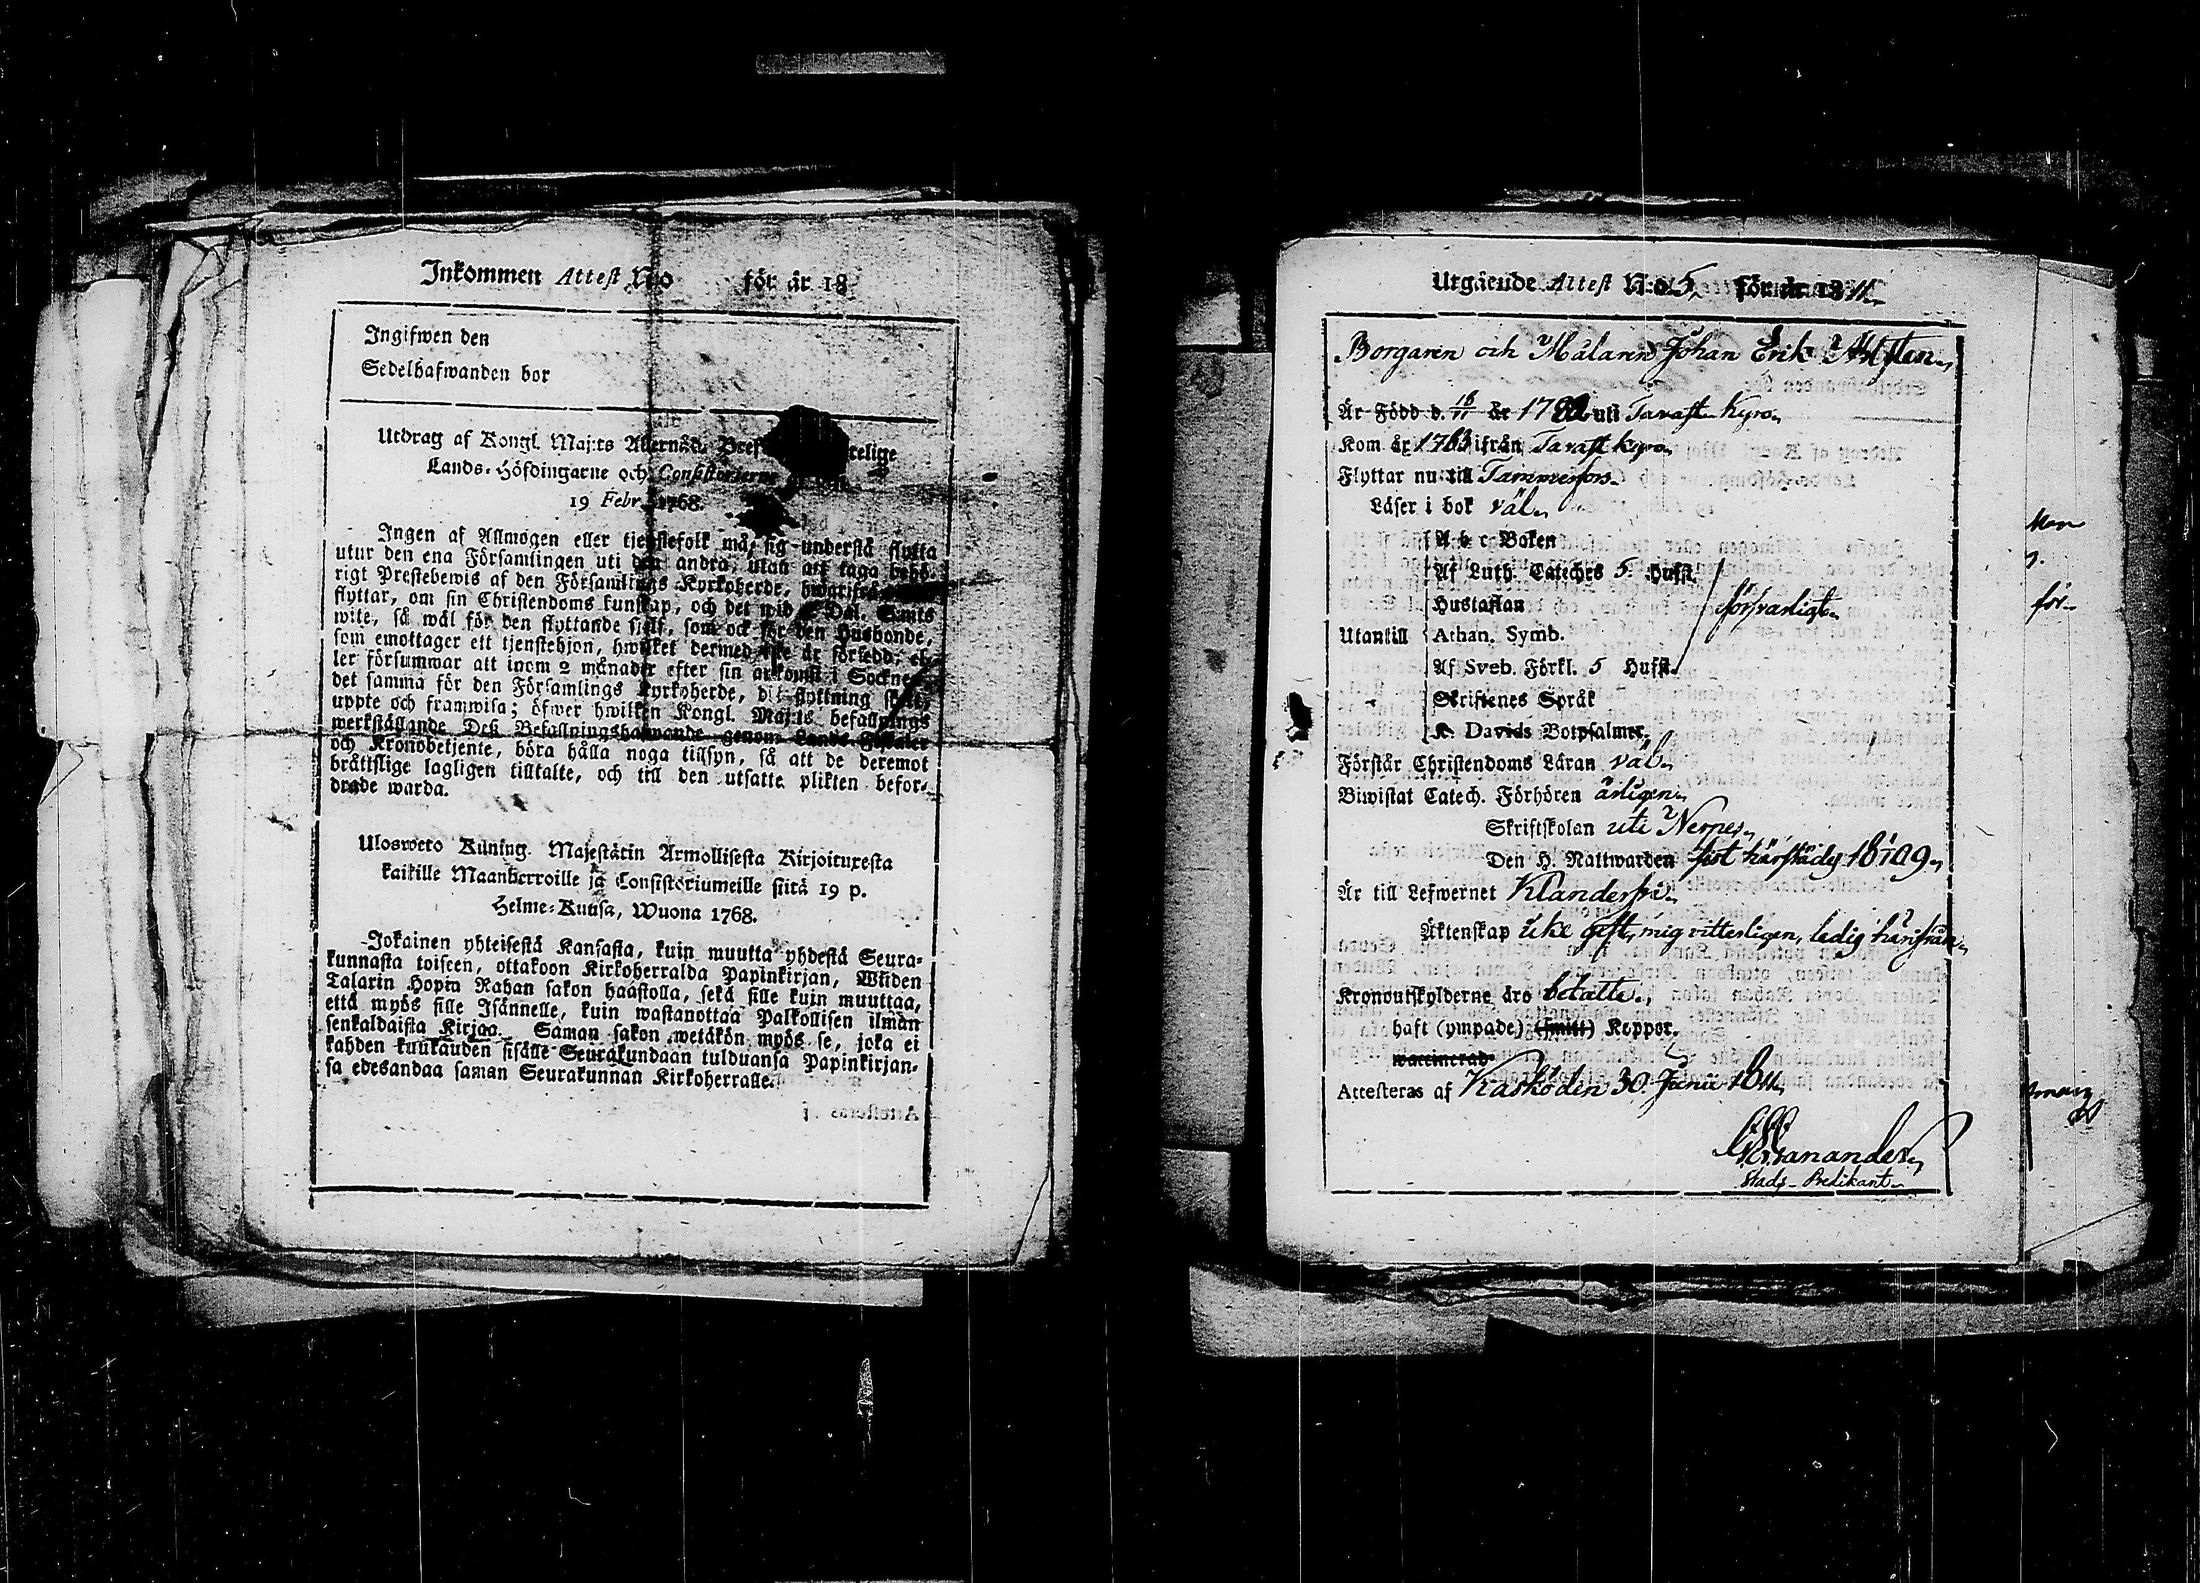 Inkommen Attest No för år 18
Ingifwen den
Sedelhafwanden bor
Utdrag af Kongl. Maj:ts Allernåd. Bref telige
Lands-Höfdingarne och Consistorierne
19 Febr. 1768.
Ingen af Allmogen eller tjenstefolk må sig understå flytta
utur den ena Församlingen uti den andra, utan att taga behö-
rigt Prestebewis af den Församlings Kyrkoherde, hwarifrå
flyttar, om sin Christendoms kunskap, och det wid Dal. S:mts
wite, så wäl för den flyttande sjelf, som ock för den Husbonde,
som emottager ett tjenstehjon, hwilket dermed icke är försedd; el-
ler försummar att inom 2 månader efter sin ankomst i Sockne
det samma för den Församlings Kyrkoherde, dit flyttning skett,
uppte och framwisa; öfwer hwilken Kongl. Maj:ts befallnings
werkställande Dess Befallningshafwande genom Lands-Fiscaler
och Kronobetjente, böra hålla noga tillsyn, så att de deremot
brättslige lagligen tilltalte, och till den utsatte plikten befor-
drade warda.
Ulosweto Kuning. Majestätin Armollisesta Kirjoituxesta
kaikille Maanherroille ja Consistoriumeille siitä 19 p.
Helme-Kuusa, Wuona 1768.
Jokainen yhteisestä Kansasta, kuin muutta yhdestä Seura-
kunnasta toiseen, ottakoon Kirkoherralda Papinkirjan, Wiiden
Talarin Hopia Rahan sakon haastolla, sekä sille kuin muuttaa,
että myös sille Isännelle, kuin wastanottaa Palkollisen ilman
senkaldaista Kirjaa. Saman sakon wetäkön myös se, joka ei
kahden kuukauden sisälle Seurakundaan tulduansa Papinkirjan-
sa edesandaa saman Seurakunnan Kirkoherralle.
Utgående Attest N:o 5. för år 1811.
Borgaren och Målaren Johan Erik
Är Född d. 16/11 år uti Tavast Kyro
Kom år 1783 ifrån Tavastkyro
Flyttar nu till Tammerfors.
Läser i bok väl.
A b c Boken
Af Luth. Cateches 5. Hufst.
Hustaflan försvarligt.
Utantill Athan. Symb.
Af Sveb. Förkl. 5 Hufst.
Skriftenes Språk
K. Davids Botpsalmer.
Förstår Christendoms Läran väl.
Biwistat Catech. Förhören årligen.
Skriftskolan uti Nerpes.
Den H. Nattwarden sist härstädes 1809.
Är till Lefwernet Klanderfri.
Äktenskap icke gift, mig vitterligen, ledig härifrån.
Kronoutskylderne äro betalte.
haft (ympade) (smitt) Koppor.
waccinerad
Attesteras af Kaskö den 30 Junii 1811.
Stads-Predikant.
för